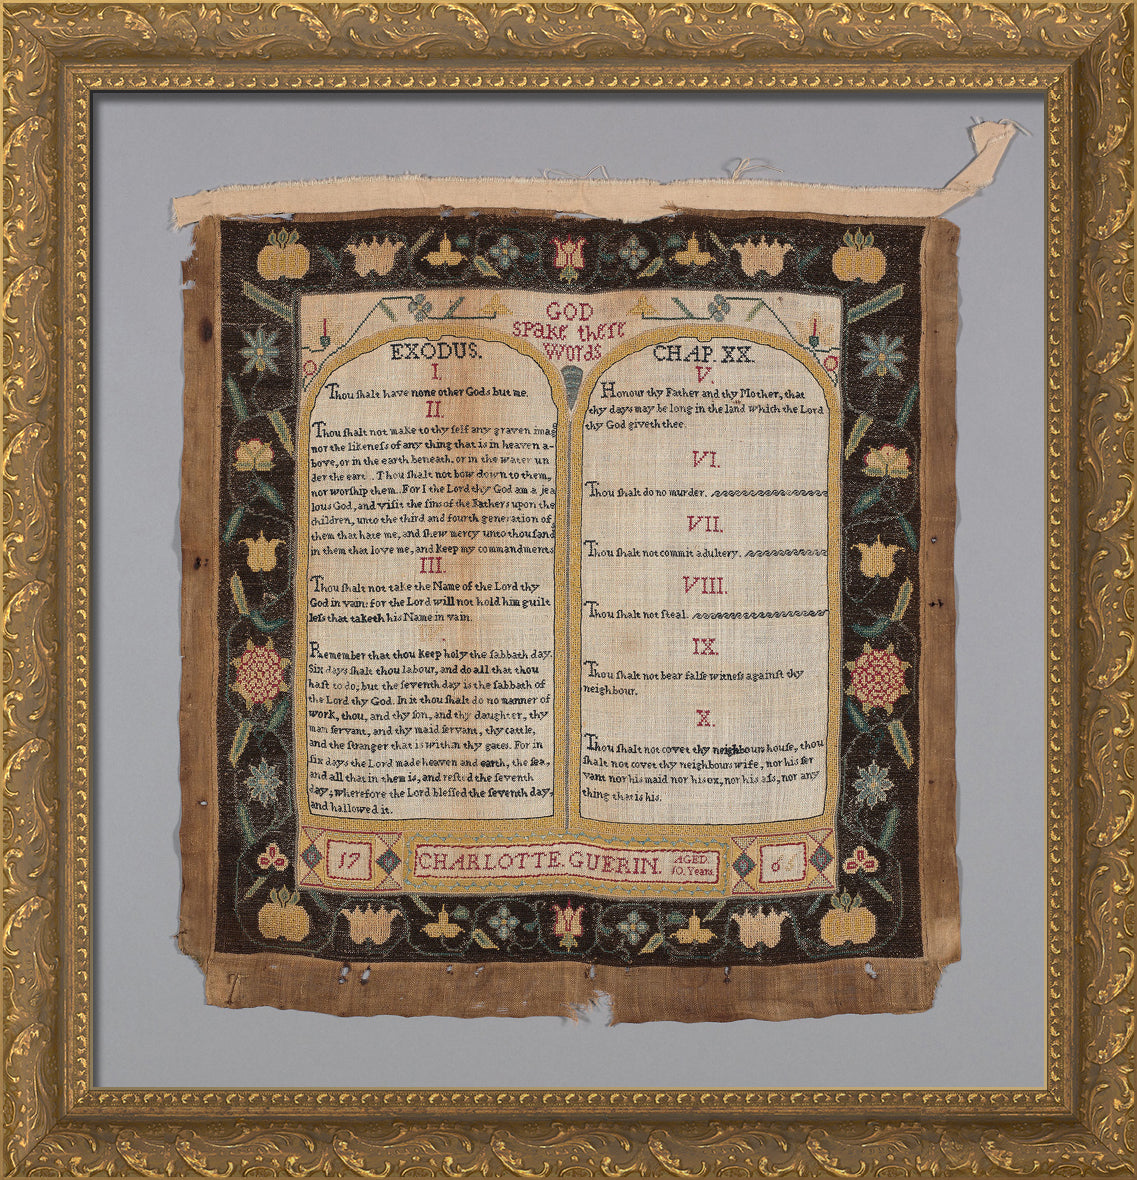 GOD
spake these
Words
EXODUS.
I.
Thou ſhalt have none other Gods but me.
II.
Thou ſhalt not make to thy ſelf any graven imag
nor the likeneſs of any thing that is in heaven a-
bove, or in the earth beneath. or in the water un
der the eart . Thou ſhalt not bow down to them,
nor worſhip them.. For I the Lord thy God am a jea
lous God, and viſit the ſins of the Fathers upon the
children, unto the third and fourth generation of
them that hate me, and ſhew mercy unto thouſand
in them that love me, and keep my commandments
III.
Thou ſhalt not take the Name of the Lord thy
God in vain: for the Lord will not hold him guilt
leſs that taketh his Name in vain.
Remember that thou keep holy the ſabbath day.
Six days ſhalt thou labour, and do all that thou
haſt to do; but the ſeventh day is the ſabbath of
the Lord thy God. In it thou ſhalt do no manner of
work, thou, and thy ſon, and thy daughter, thy
man ſervant, and thy maid ſervant, thy cattle,
and the ſtranger that is within thy gates. For in
ſix days the Lord made heaven and earth, the ſea,
and all that in them is, and reſted the ſeventh
day; wherefore the Lord bleſſed the ſeventh day,
and hallowed it.
CHAP. XX.
V.
Honour thy Father and thy Mother, that
thy days may be long in the land which the Lord
thy God giveth thee.
VI.
Thou ſhalt do no murder.
VII.
Thou ſhalt not commit adultery.
VIII.
Thou ſhalt not ſteal.
IX.
Thou ſhalt not bear falſe witneſs againſt thy
neighbour.
X.
Thou ſhalt not covet thy neighbours houſe, thou
ſhalt not covet thy neighbours wife, nor his ſer
vant nor his maid nor his ox, nor his aſs, nor any
thing that is his.
17 CHARLOTTE. GUERIN. AGED.
10. Years.